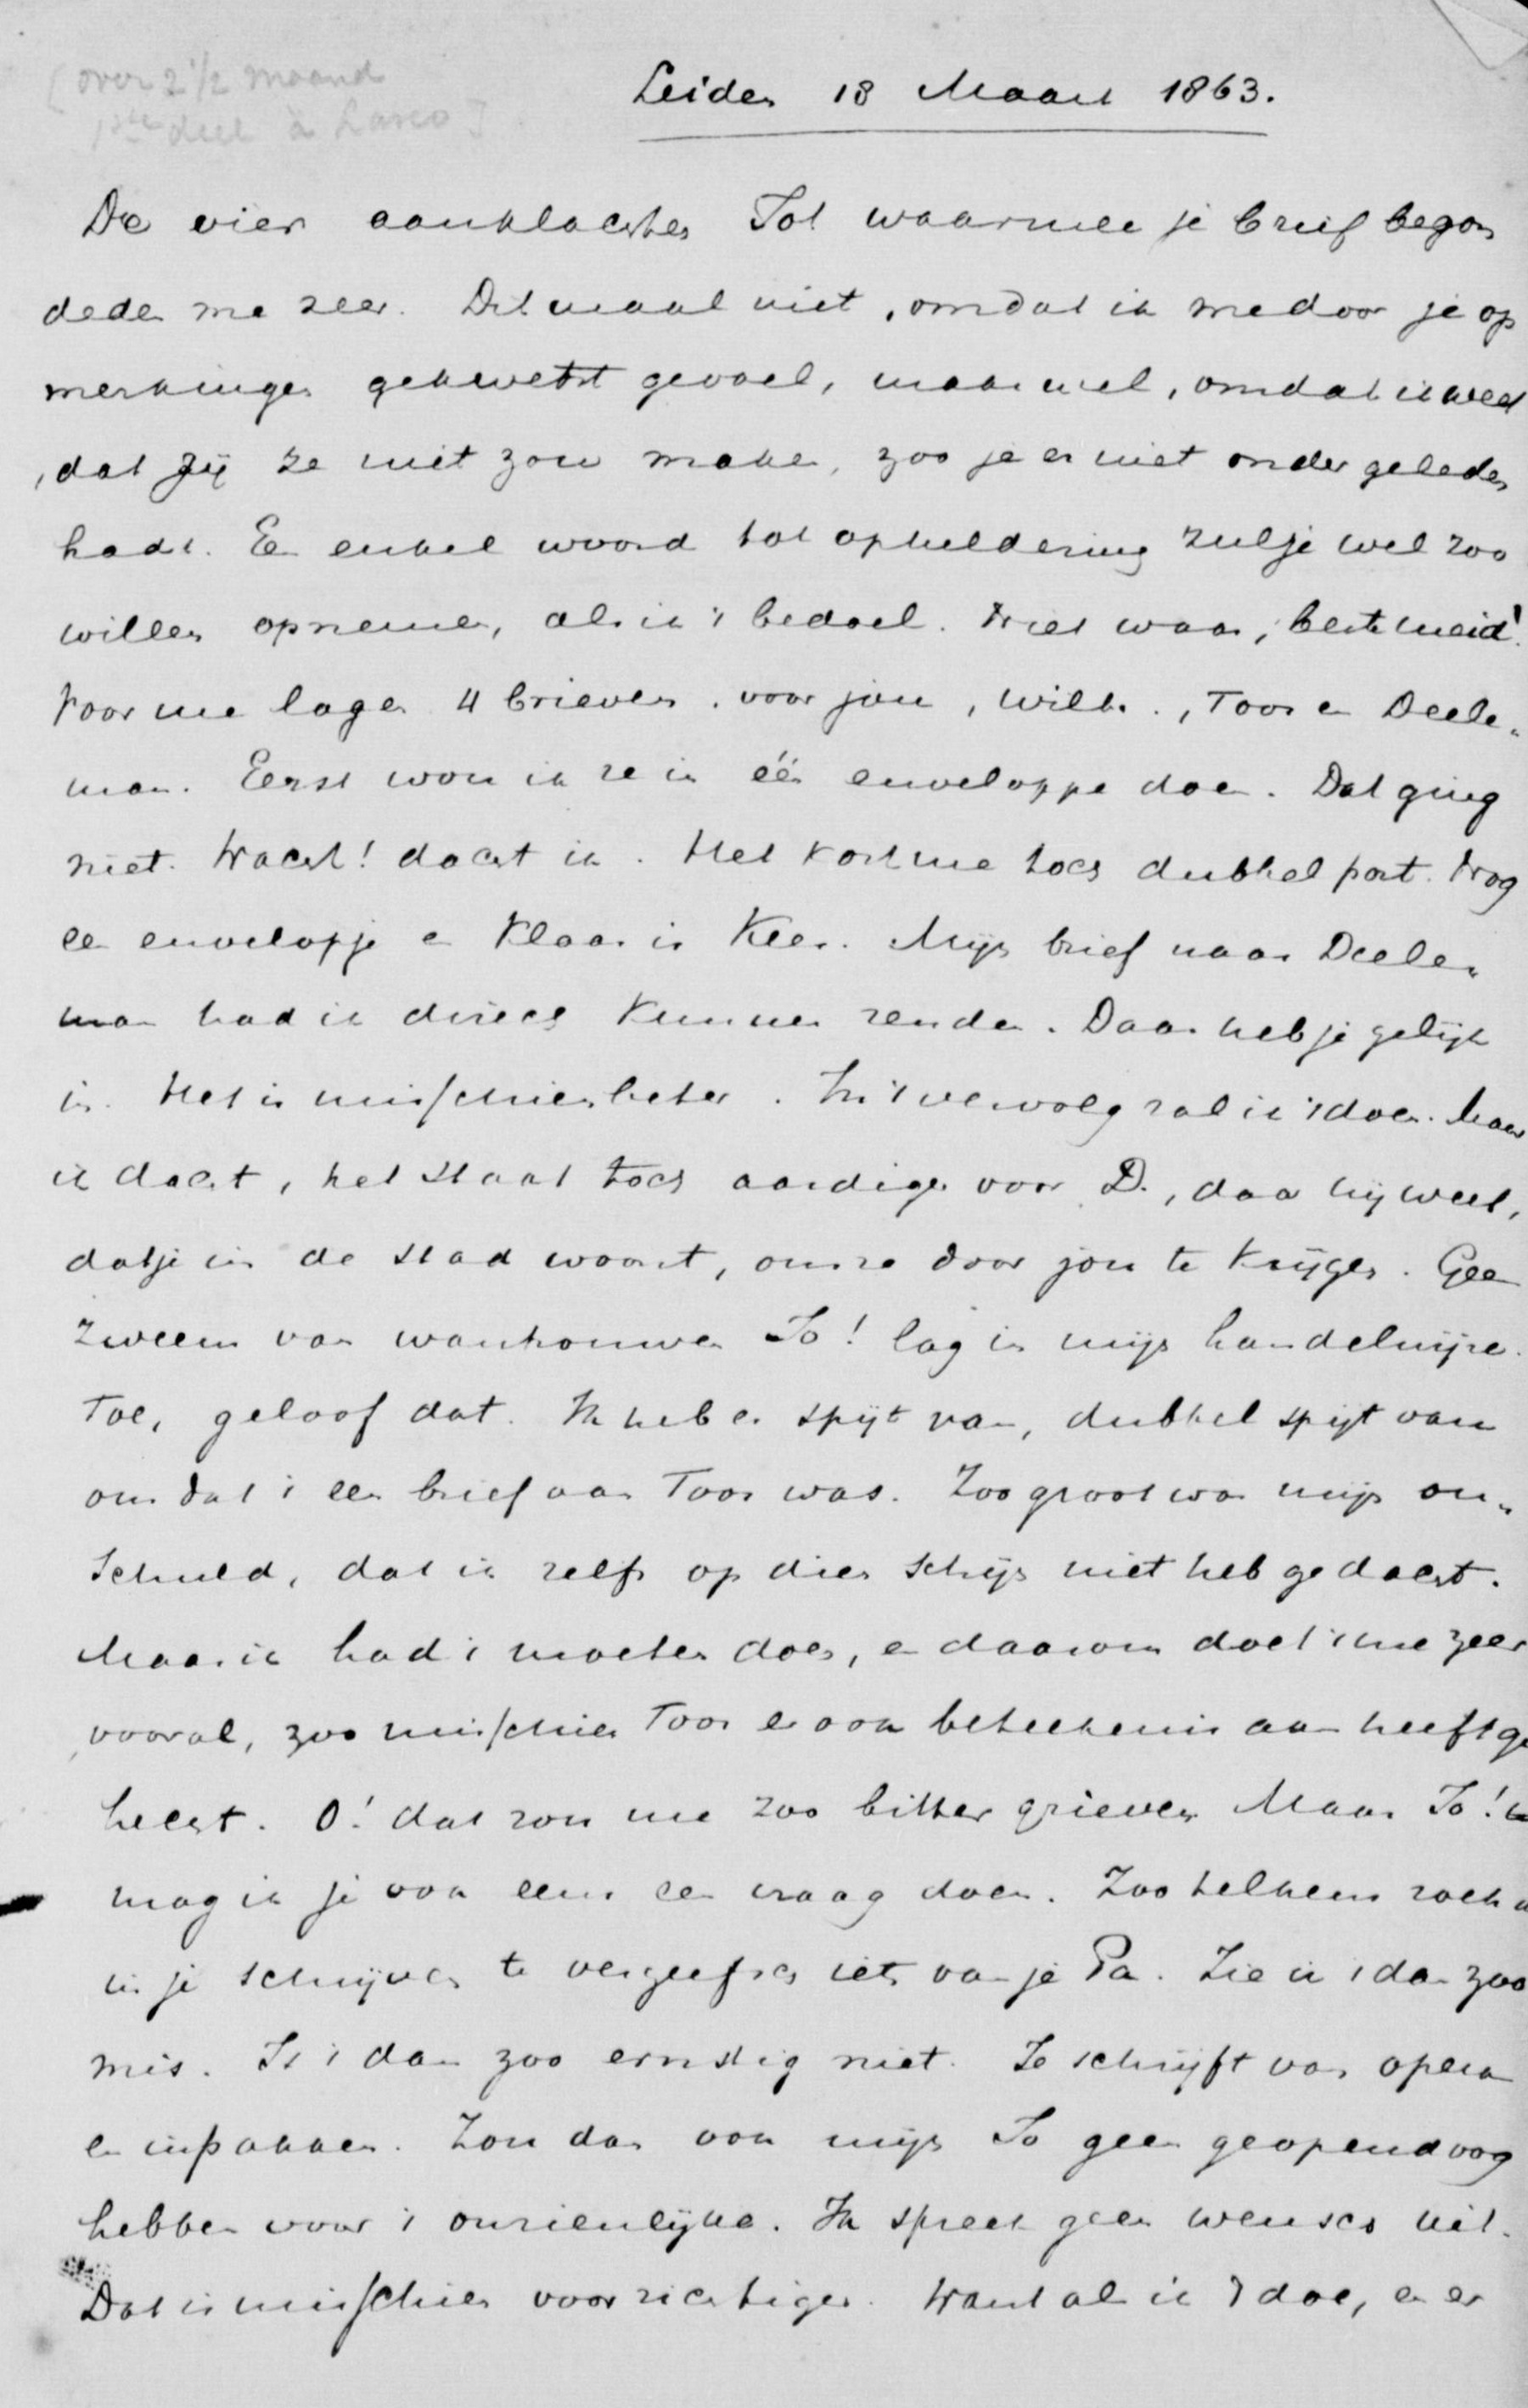 (over 2 1/2 maand
1ste deel à Lasco]
Leiden 18 Maart 1863.
De vier aanklachten Jo! waarmee je brief begon
deden me zeer. Ditmaal niet, omdat ik me door je op
merkingen gekwetst gevoel, maar wel, omdat ik weet
, dat Jij ze niet zou maken, zoo je er niet onder geleden
hadt. Een enkel woord tot opheldering zul je wel zoo
willen opnemen, als ik 't bedoel. Niet waar, beste meid!
Voor me lagen 4 brieven. voor jou, Wilh., Toos en Deele„
man. Eerst wou ik ze in één enveloppe doen. Dat ging
niet. Wacht! dacht ik. Het kost me toch dubbel port. Nog
een envelopje en Klaar is Kees. Mijn brief naar Deele„
man had ik direct kunnen zenden. Daar heb je gelijk
in. Het is misschien beter. In 't vervolg zal ik 't doen. Maar
ik dacht, het staat toch aardiger voor D., daar hij weet,
dat je in de stad woont, om ze door jou te krijgen. Geen
zweem van wantrouwen Jo! lag in mijn handelwijze.
Toe, geloof dat. Ik heb er spijt van, dubbel spijt van
omdat 't een brief aan Toos was. Zoo groot was mijn on„
schuld, dat ik zelfs op dien schijn niet heb gedacht.
Maar ik had 't moeten doen, en daarom doet 't me zeer
vooral, zoo misschien Toos er ook beteekenis aan heeft ge
hecht. O! dat zou me zoo bitter grieven Maar Jo!
mag ik je ook eens een vraag doen. Zoo telkens zoek ik
in je schrijven te vergeefsch iets van je Pa. Zie ik 't dan zoo
mis. Is 't dan zoo ernstig niet. Je schrijft van opera
en inpakken. Zou dan ook mijn Jo geen geopend oog
hebben voor 't onzienlijke. Ik spreek geen wensch uit.
Dat is misschien voorzichtiger. Want al ik 't doe, en er